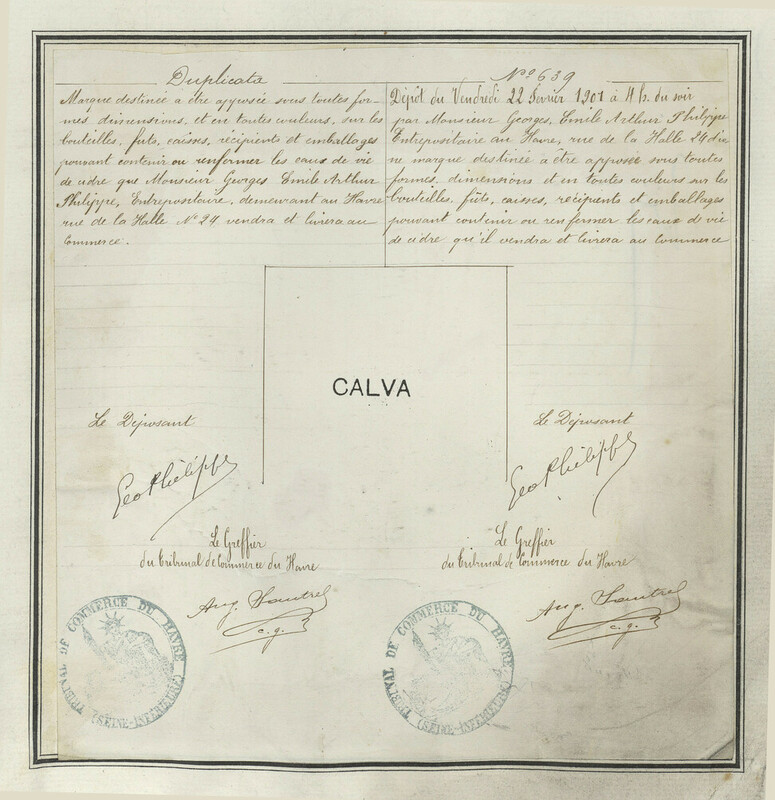 Duplicata
Marque destinée à être apposée sous toutes for-
mes, dimensions, et en toutes couleurs, sur les
bouteilles, futs, caisses, récipients et emballages
pouvant contenir ou renfermer les eaux de vie
de cidre que Monsieur Georges Emile Arthur
Philippe, Entrepositaire, demeurant au Havre
rue de la Halle No 24 vendra et livrera au
Commerce.
No 639
Dépôt du Vendredi 22 Février 1901 à 4 h. du soir
par Monsieur Georges, Emile Arthur Philippe
Entrepositaire au Havre, rue de la Halle 24 d'u
ne marque destinée à être apposée sous toutes
formes, dimensions et en toutes couleurs sur les
bouteilles, fûts, caisses, récipients et emballages
pouvant contenir ou renfermer les eaux de vie
de cidre qu'il vendra et livrera au Commerce
CALVA
Le Déposant
Geo Philippe
Le Greffier
du Tribunal de Commerce du Havre
Aug.
c.g.
TRIBUNAL DE COMMERCE DU HAVRE
(SEINE-INFÉRIEURE)
Le Déposant
Geo Philippe
Le Greffier
du Tribunal de Commerce du Havre
Aug.
c.g.
TRIBUNAL DE COMMERCE DU HAVRE
(SEINE-INFÉRIEURE)